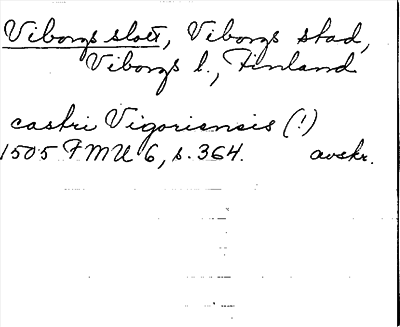 Viborgs slott, Viborgs stad,
Viborgs l., Finland
castri Vigoriensis (!)
1505 FMU 6, s. 364. avskr.